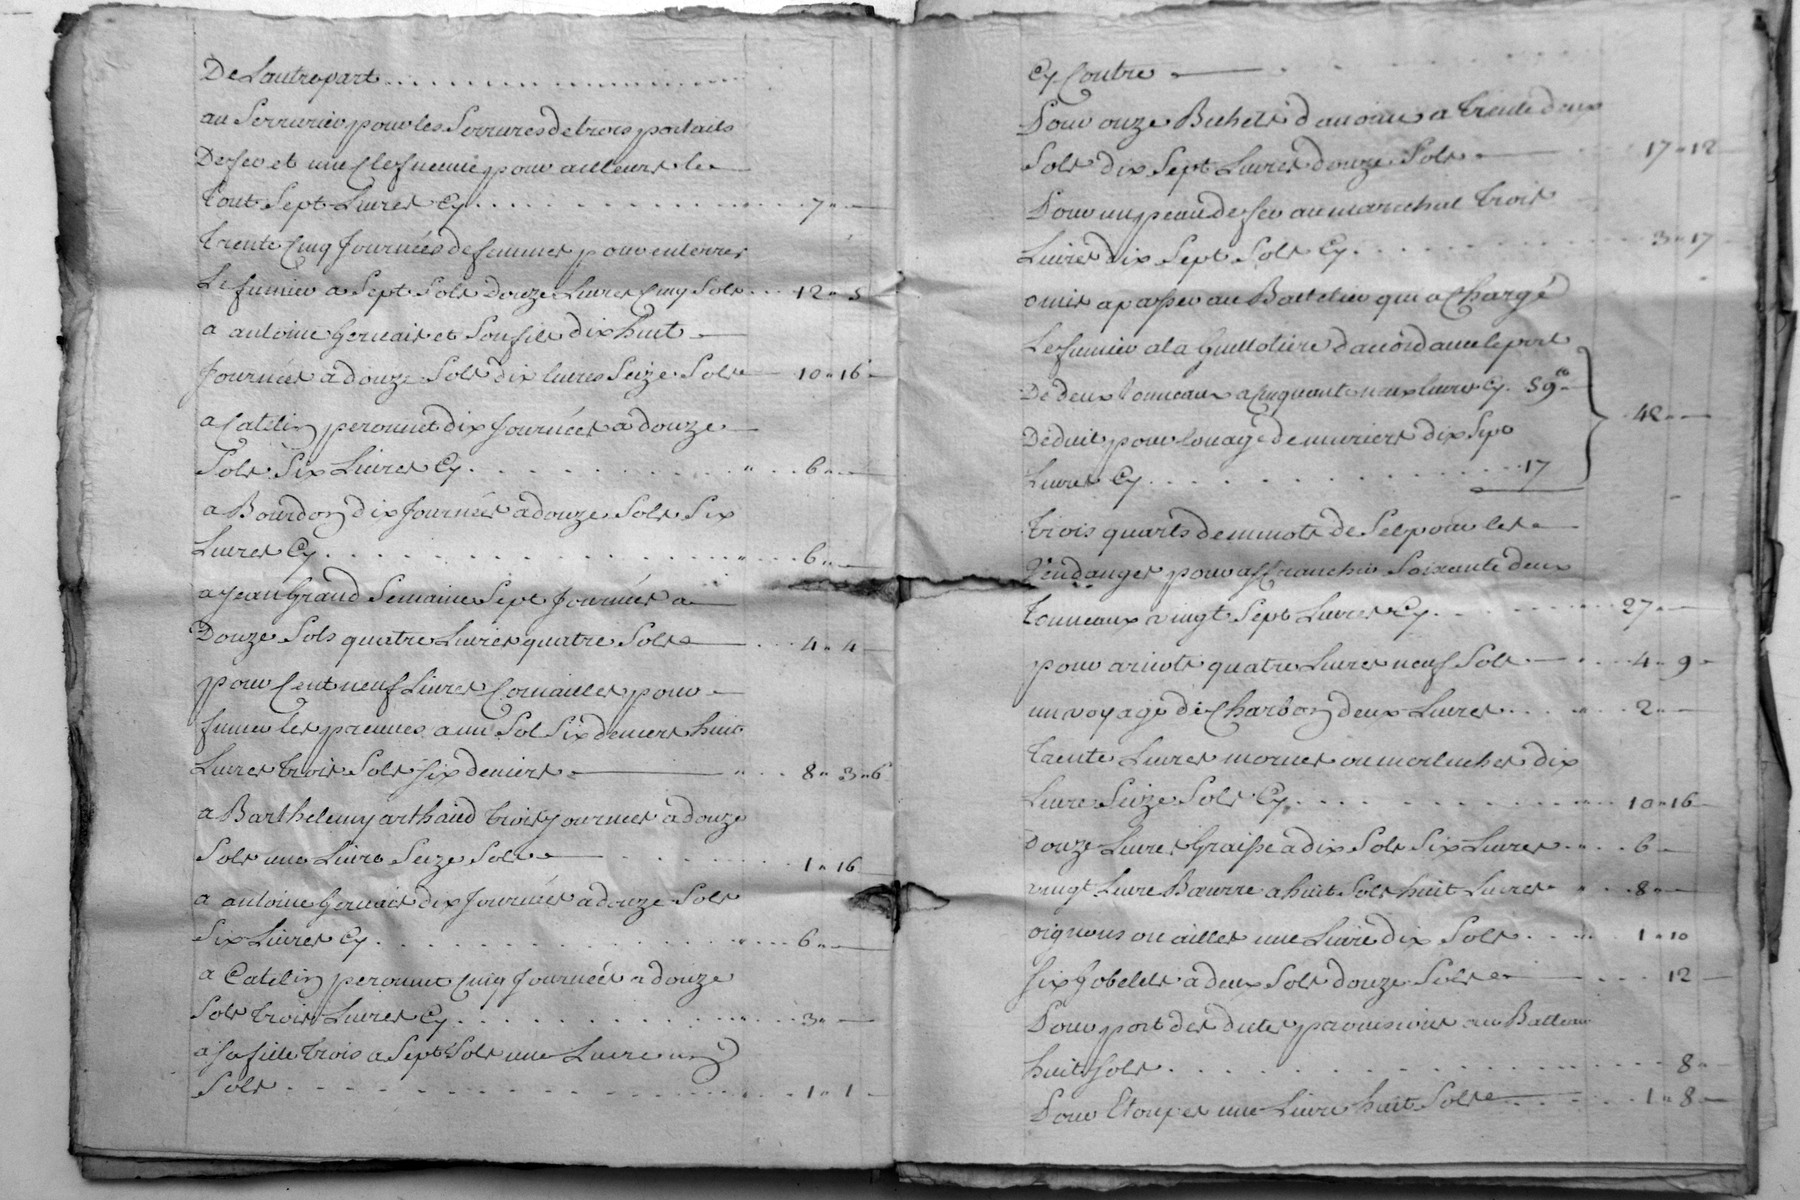 De Lautrepart . . . . . . . . . . . . . .
au Serrurier pour les Serrures de trois portaits
De fer et une Clef neuve pour ailleurs le
Tout Sept Livres Cy . . . . . . . . . . 7 " —
trente Cinq Journées de femmes pour enterrer
Le fumier a Sept Sols Douze Livres Cinq Sols . . . 12 " 5
a antoine Gervais et Son fils dix huit
Journées a douze Sols dix livres Seize Sols — 10 " 16
a Catelin peronnet dix Journées a douze
Sols Six Livres Cy . . . . . . . . . . " . . 6 " —
a Bourdon dix Journées a douze Sols Six
Livres Cy . . . . . . . . . . . . " . . 6 " —
a Jean Grand Semaine Sept Journées a
Douze Sols quatre Livres quatre Sols — . . . 4 " 4 —
pour Cent neuf Livres Cornailles pour
fumer les a un Sol Six deniers huit
Livres trois Sols Six deniers — " . . . 8 " 3 " 6
a Barthelemy arthaud trois Journées a douze
Sols une Livre Seize Sols — . . . . . 1 " 16
a antoine Gervais dix Journées a douze Sols
Six Livres Cy . . . . . . . . . . . " . . . 6 " —
a Catelin peronnet Cinq Journées a douze
Sols trois Livres Cy . . . . . . . . . " . . . 3 " —
a Sa fille trois a Sept Sols une Livre un
Sols . . . . . . . . . . . . . . . . . " . . 1 " 1 —
Cy Contre —
Pour onze Bichets d'avoine a trente deux
Sols dix Sept Livres douze Sols — . . . 17 " 12
Pour un peau de fer au marechal trois
Livres dix Sept Sols Cy . . . . . . . . . 3 " 17
omis a passer au Battelier qui a Chargé
Le fumier a la Guillotiere d'accord avec le port
De deux tonneaux a Cinquante neuf livres Cy . 59 " —
Déduit pour louage de muriers dix Sept
Livres Cy . . . . . . . . . . . 17
42 " —
trois quarts de minots de Sel pour les
Vendanges pour affranchir Soixante deux
tonneaux vingt Sept Livres Cy . . . . . . 27 " —
pour aricots quatre Livres neuf Sols — " . . . 4 " 9 —
un voyage de Charbon deux Livres . . . " . . 2 " —
trente Livres morues ou merluches dix
Livres Seize Sols Cy . . . . . . . . . " . . 10 " 16 —
douze Livres Graisse a dix Sols Six Livres . " . . 6 —
vingt Livre Bœurre a huit Sols huit Livres " . . . 8 " —
oignons ou ailles une Livre dix Sols . . . " . . 1 " 10
Six Gobelets a deux Sols douze Sols — . . . 12 —
Pour port des dittes provisions au Batteau
huit Sols . . . . . . . . . . . . . . . 8 " —
Pour Etoupes une Livre huit Sols — . . . . 1 " 8 —